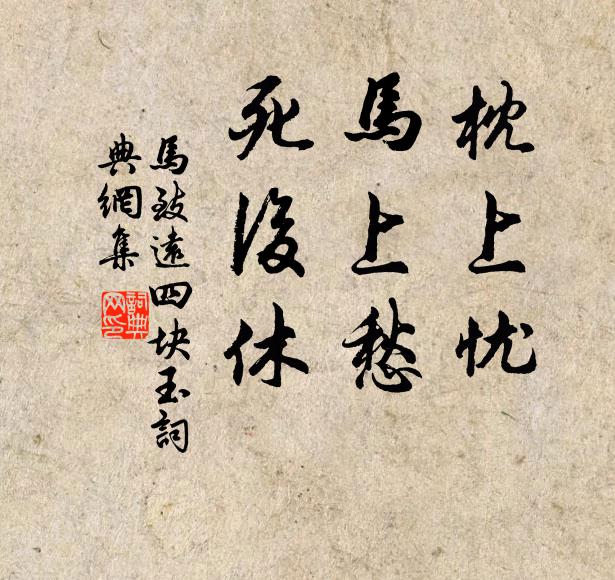 枕上忧
馬上愁
死後休
馬致遠四块玉詞
典網集
詞典
网印